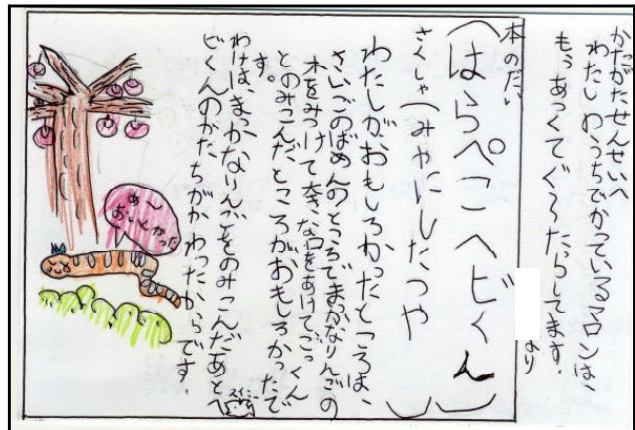 かたがたせんせいへ
わたしのうちでかっているマロンは、
もうあつくてぐうたらしてます。
より
本のだい
(はらぺこヘビくん)
さくしゃ(みやにしたつや)
わたしがおもしろかったところは、
さいごのばめんのところでまっかなりんごの
木をみつけて大きな口をあけてごっくん
とのみこんだところがおもしろかったで
す。
わけは、まっかなりんごをのみこんだあとへ
ビくんのかたちがかわったからです。
あーし
おいしかった